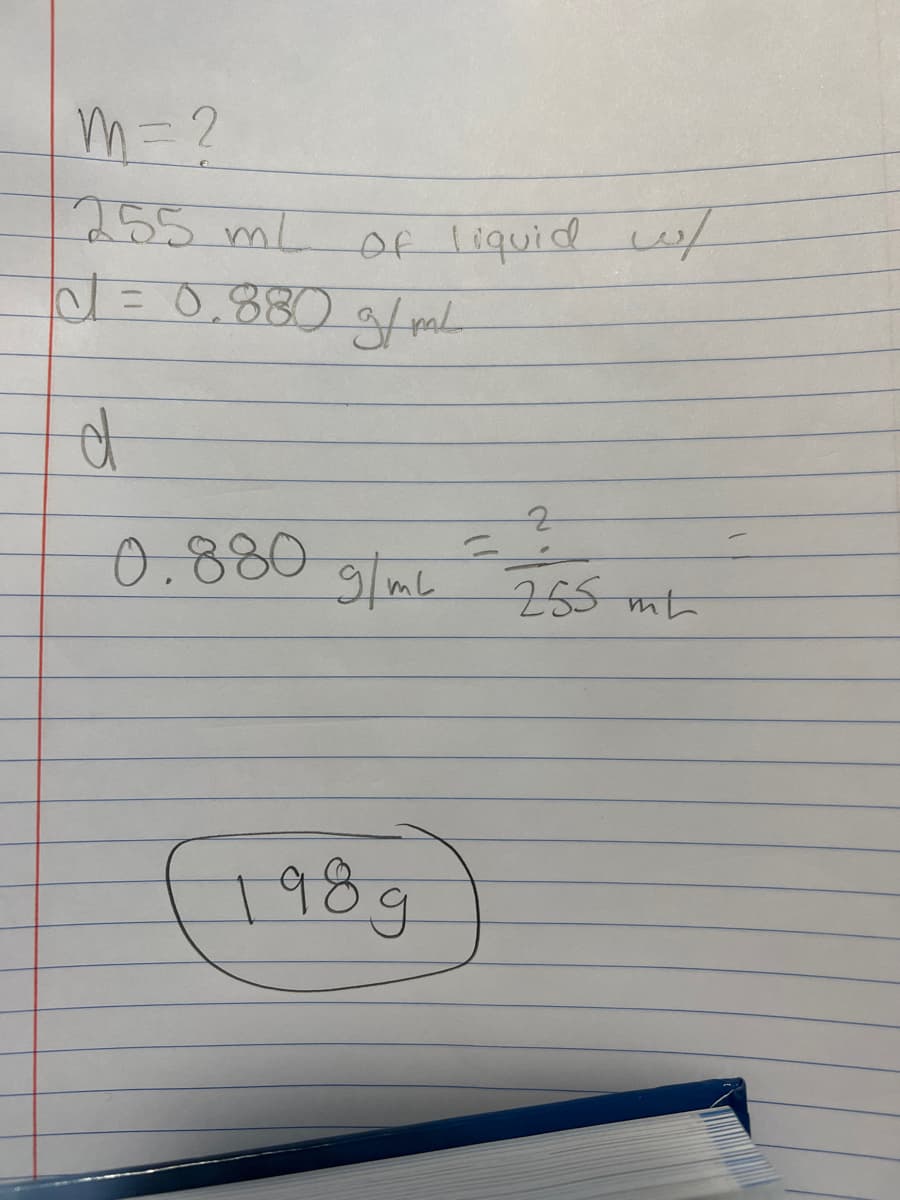 m = ?
255 mL of liquid w/
d = 0.880 g/mL
d
0.880 g/mL = ?/255 mL =
198g